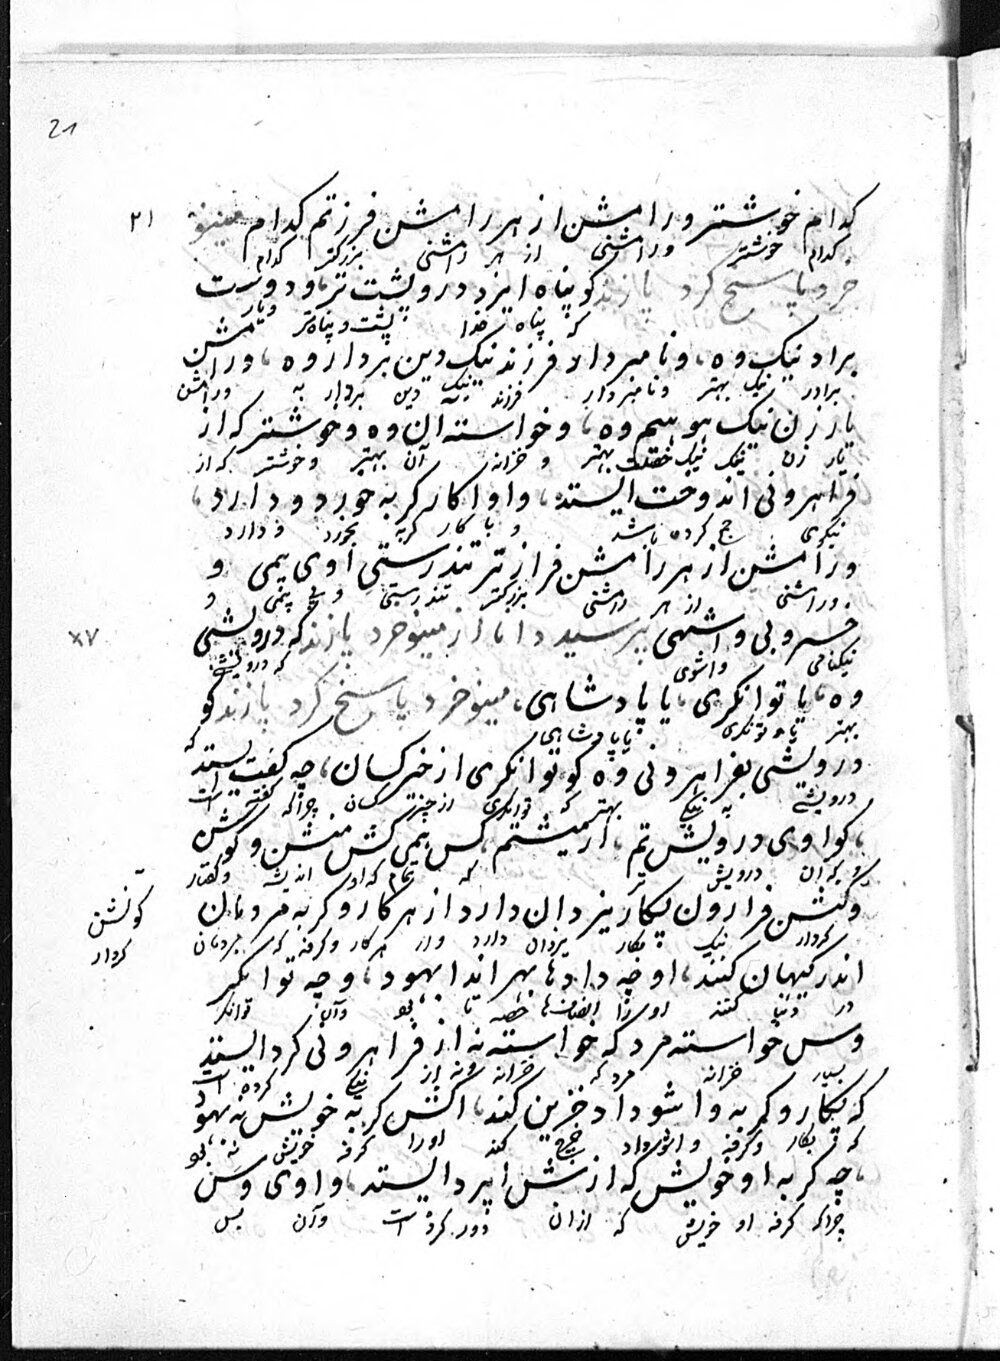 21
۲۱
کدام خوشتر و رامش از هر رامش فرزتم کدام مینو
کدام خوشتر و رامشنی از هر رامشنی بزرگتر کدام
خرد پاسخ کرد پازند کو پناه ایزد درو پشت تر، و دوست
که پناه خدا پشت و پناه‌تر و یار
براد نیک وه، و نامبردار فرزند نیک دین بردار وه، و رامش
برادر نیک بهتر و نامبردار فرزند نیک دین بردار به و رامش
یار زن نیک هو سیم وه، و خواسته آن وه و خوشتر که از
یار زن نیک نیک خصلت بهتر و خزانه آن بهتر و خوشتر که از
فراهرونی اندوخت ایستد، و اوا کار کربه خورد و دارد،
نیکوی جمع کرده باشد و با کار کرپه بخورد و دارد
و رامش از هر رامش فرازتر تندرستی اوی بیمی و
و رامشنی از هر رامشنی بزرگتر تندرستی و بی بیمی و
خسروبی و اشهی پرسید دانا از مینو خرد پازند که درویشی
نیکنامی و اشوی که درویشی
۲۷
وه، یا توانگری، یا پادشاهی، مینو خرد پاسخ کرد پازند کو
بهتر یا توانگری یا پادشاهی که
درویشی بفراهرونی وه کو توانگری از خیر کسان، چه گفت ایستد
درویشی به نیکی بهتر که توانگری از چیز کسان چراکه گفته است
، کو اوی درویش تم، ارمیشتم کس همی کش منشن و گوشن
که آن درویش تر که اندیشه و گفتار
و کنشن فرارون پیکار یزدان دارد از هر کار و کربه مردمان
کردار نیک بکار یزدان دارد و از هر کار و کرفه که مردمان
کونشن
کردار
اندر کیهان کنند، او چه دادها بهر اندا بهود، و چه توانگر
در دنیا کنند او را انصافها حصه تا بو و آن توانگر
وس خواسته مرد که خواسته نه از فراهرونی کرد ایستد
بسیار خزانه مرد که خزانه و نه از نیکی کرده است
که پیکار و کربه و اشوداد خزین کند، اش کربه خویش نه بهود
که بکار و کرفه و اشوداد خرج کند او را کرفه خویش نه بو
، چه کربه او خویش که ازش اپرد ایستد، و اوی وس
چراکه کرفه او خویش که از ان دور کرده است و آن بس